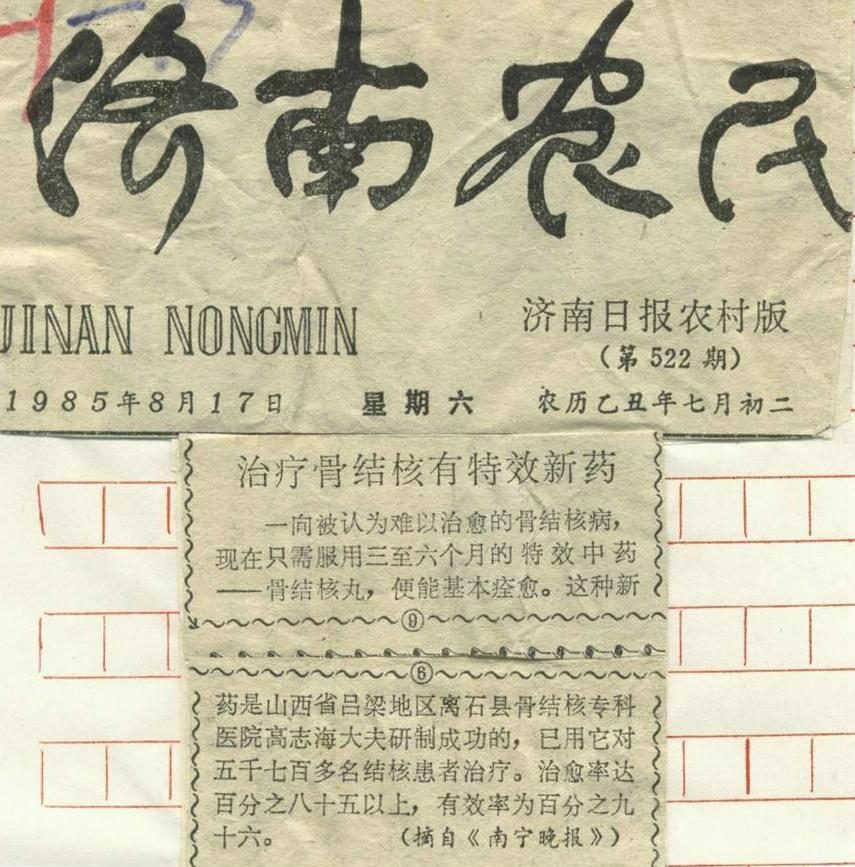 济南农民
JINAN NONGMIN
济南日报农村版
（第 522 期）
1985年8月17日 星期六 农历乙丑年七月初二
治疗骨结核有特效新药
一向被认为难以治愈的骨结核病，
现在只需服用三至六个月的特效中药
——骨结核丸，便能基本痊愈。这种新
⑨
⑥
药是山西省吕梁地区离石县骨结核专科
医院高志海大夫研制成功的，已用它对
五千七百多名结核患者治疗。治愈率达
百分之八十五以上，有效率为百分之九
十六。 （摘自《南宁晚报》）